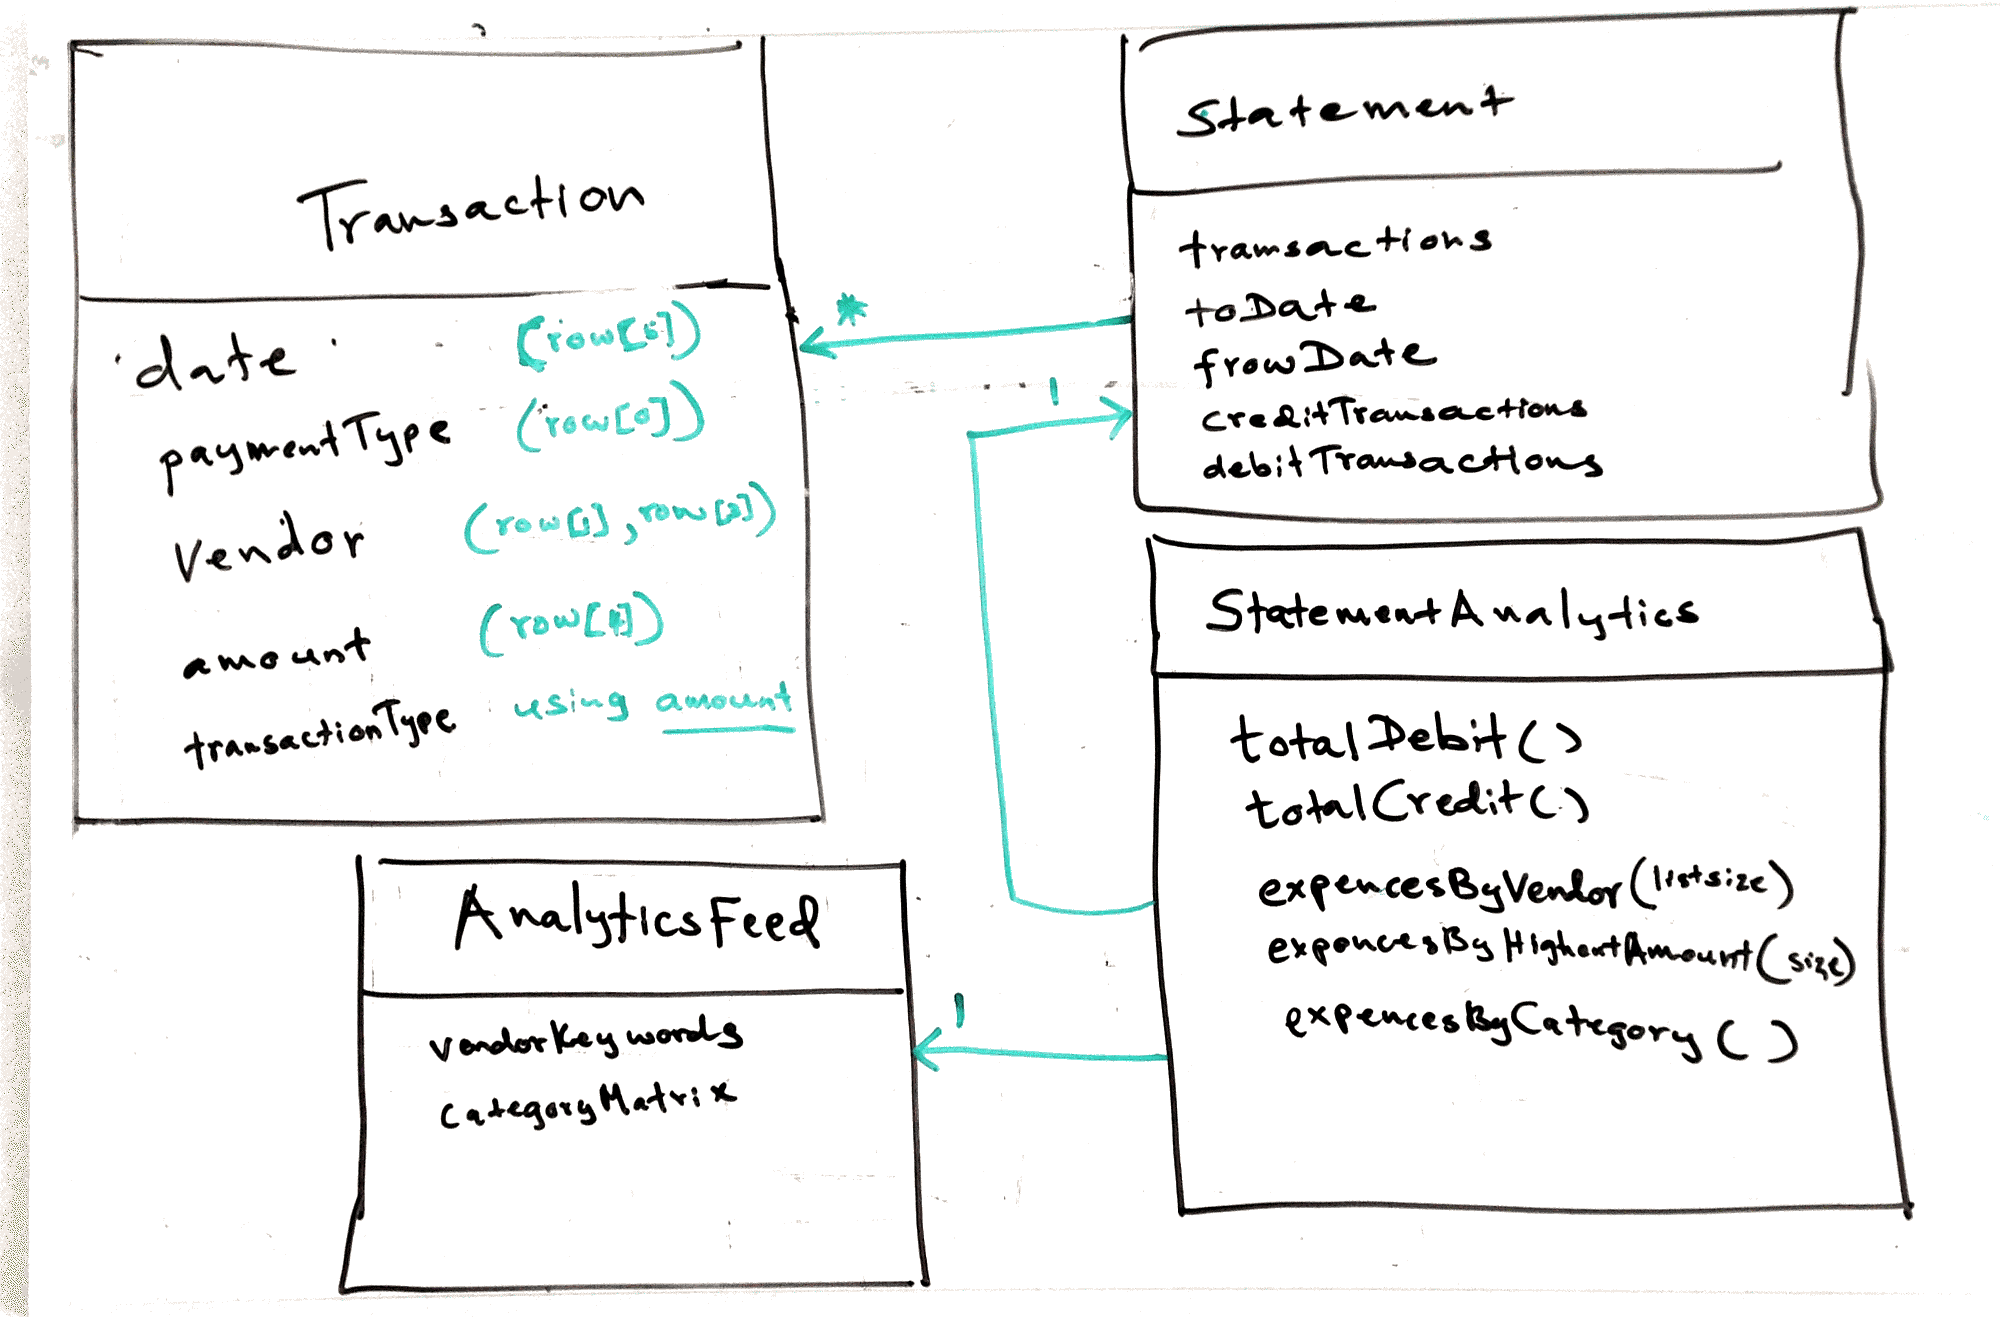 Transaction
date (row[5])
paymentType (row[0])
Vendor (row[1], row[2])
amount (row[4])
transactionType using amount
*
Statement
transactions
toDate
fromDate
creditTransactions
debitTransactions
1
StatementAnalytics
totalDebit()
totalCredit()
expencesByVendor(listsize)
expencesByHighestAmount(size)
expencesByCategory()
1
AnalyticsFeed
vendorKeywords
categoryMatrix